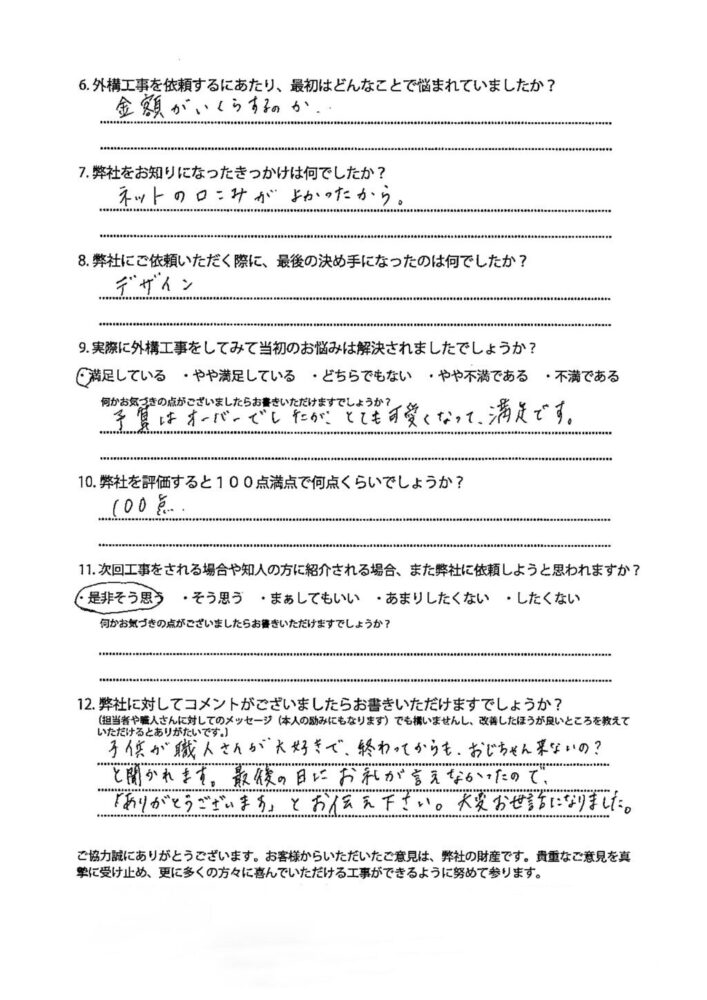 6. 外構工事を依頼するにあたり、最初はどんなことで悩まれていましたか？
金額がいくらするのか..
7. 弊社をお知りになったきっかけは何でしたか？
ネットの口こみが よかったから。
8. 弊社にご依頼いただく際に、最後の決め手になったのは何でしたか？
デザイン
9. 実際に外構工事をしてみて当初のお悩みは解決されましたでしょうか？
・満足している ・やや満足している ・どちらでもない ・やや不満である ・不満である
何かお気づきの点がございましたらお書きいただけますでしょうか？
予算はオーバーでしたが、とても可愛くなって、満足です。
10. 弊社を評価すると１００点満点で何点くらいでしょうか？
100点.
11. 次回工事をされる場合や知人の方に紹介される場合、また弊社に依頼しようと思われますか？
・是非そう思う ・そう思う ・まぁしてもいい ・あまりしたくない ・したくない
何かお気づきの点がございましたらお書きいただけますでしょうか？
12. 弊社に対してコメントがございましたらお書きいただけますでしょうか？
（担当者や職人さんに対してのメッセージ（本人の励みにもなります）でも構いませんし、改善したほうが良いところを教えて
いただけるとありがたいです。）
子供が職人さんが大好きで、終わってからも、おじちゃん来ないの？
と聞かれます。最後の日にお礼が言えなかったので、
「ありがとうございます」とお伝え下さい。大変お世話になりました。
ご協力誠にありがとうございます。お客様からいただいたご意見は、弊社の財産です。貴重なご意見を真
摯に受け止め、更に多くの方々に喜んでいただける工事ができるように努めて参ります。